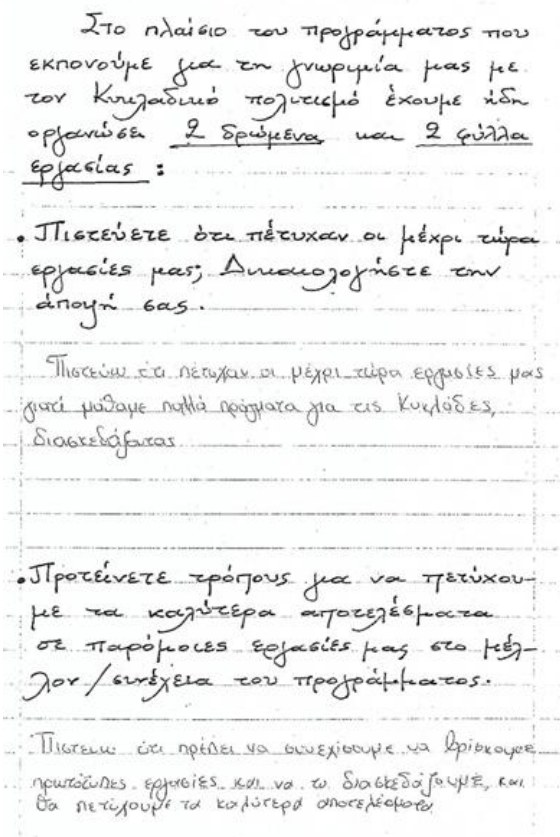 Στο πλαίσιο του προγράμματος που
εκπονούμε για τη γνωριμία μας με
τον Κυκλαδικό πολιτισμό έχουμε ήδη
οργανώσει 2 δρώμενα και 2 φύλλα
εργασίας :
• Πιστεύετε ότι πέτυχαν οι μέχρι τώρα
εργασίες μας; Δικαιολογήστε την
άποψή σας.
Πιστεύω ότι πέτυχαν οι μέχρι τώρα εργασίες μας
γιατί μάθαμε πολλά πράγματα για τις Κυκλάδες,
διασκεδάζοντας
• Προτείνετε τρόπους για να πετύχου-
με τα καλύτερα αποτελέσματα
σε παρόμοιες εργασίες μας στο μέλ-
λον/συνέχεια του προγράμματος.
Πιστεύω ότι πρέπει να συνεχίσουμε να βρίσκουμε
πρωτότυπες εργασίες και να το διασκεδάζουμε, και
θα πετύχουμε τα καλύτερα αποτελέσματα